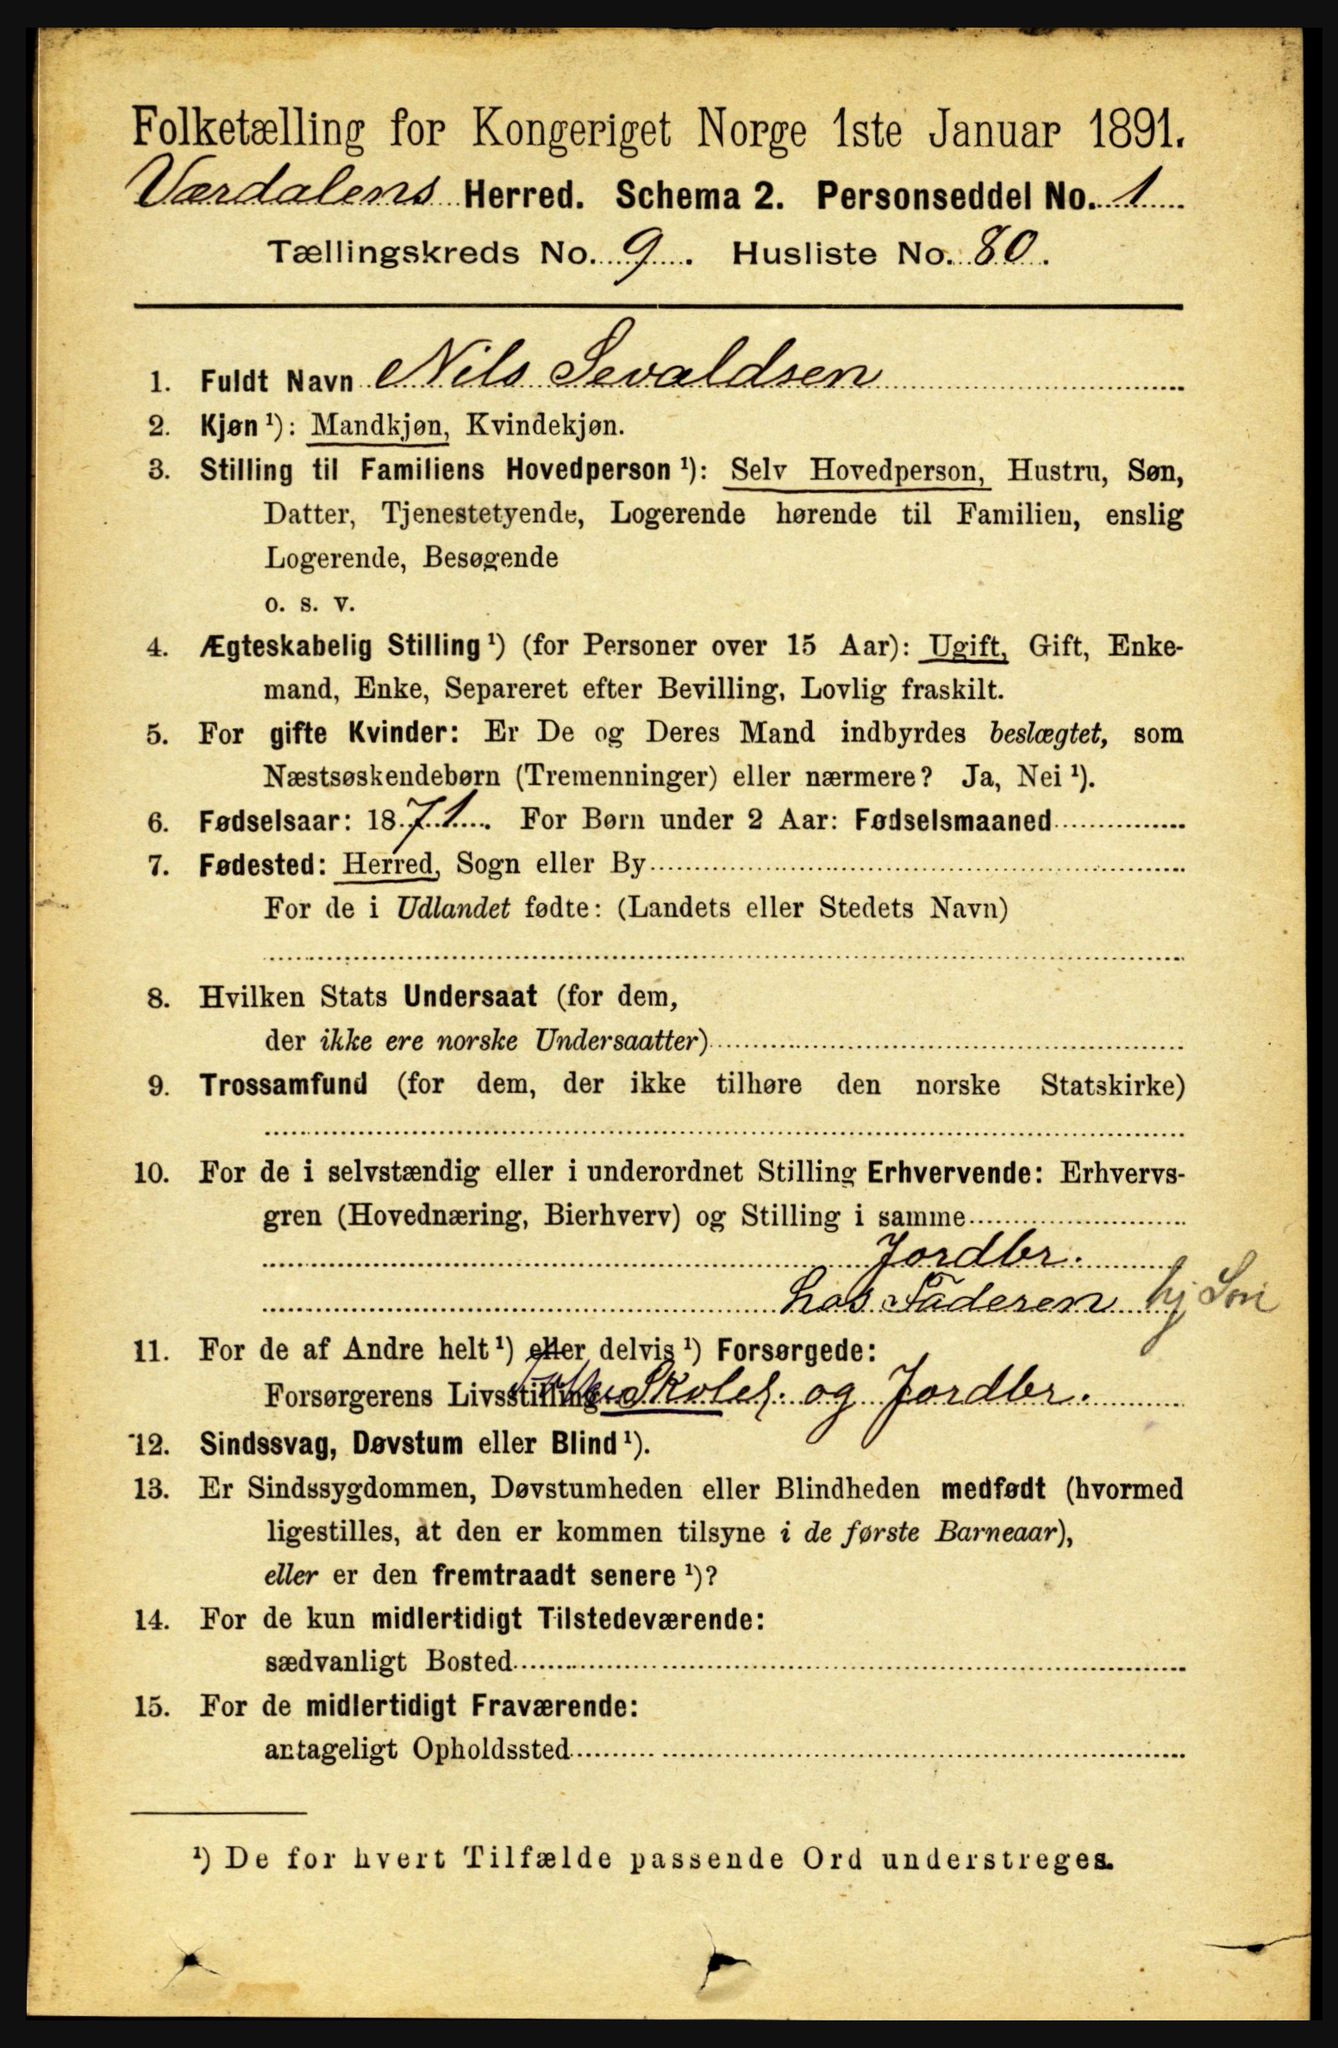 Folketælling for Kongeriget Norge 1ste Januar 1891.
Værdalens Herred. Schema 2. Personseddel No. 1
Tællingskreds No. 9. Husliste No. 80.
1. Fuldt Navn Nils Sevaldsen
2. Kjøn ¹): Mandkjøn, Kvindekjøn.
3. Stilling til Familiens Hovedperson ¹): Selv Hovedperson, Hustru, Søn,
Datter, Tjenestetyende, Logerende hørende til Familien, enslig
Logerende, Besøgende
o. s. v.
4. Ægteskabelig Stilling ¹) (for Personer over 15 Aar): Ugift, Gift, Enke-
mand, Enke, Separeret efter Bevilling, Lovlig fraskilt.
5. For gifte Kvinder: Er De og Deres Mand indbyrdes beslægtet, som
Næstsøskendebørn (Tremenninger) eller nærmere? Ja, Nei ¹).
6. Fødselsaar: 1871. For Børn under 2 Aar: Fødselsmaaned
7. Fødested: Herred, Sogn eller By
For de i Udlandet fødte: (Landets eller Stedets Navn)
8. Hvilken Stats Undersaat (for dem,
der ikke ere norske Undersaatter)
9. Trossamfund (for dem, der ikke tilhøre den norske Statskirke)
10. For de i selvstændig eller i underordnet Stilling Erhvervende: Erhvervs-
gren (Hovednæring, Bierhverv) og Stilling i samme
Jordbr.
hos Faderen hj Søn
11. For de af Andre helt ¹) eller delvis ¹) Forsørgede:
Forsørgerens Livsstilling Skolel. og Jordbr.
12. Sindssvag, Døvstum eller Blind ¹).
13. Er Sindssygdommen, Døvstumheden eller Blindheden medfødt (hvormed
ligestilles, at den er kommen tilsyne i de første Barneaar),
eller er den fremtraadt senere ¹)?
14. For de kun midlertidigt Tilstedeværende:
sædvanligt Bosted
15. For de midlertidigt Fraværende:
antageligt Opholdssted
¹) De for hvert Tilfælde passende Ord understreges.